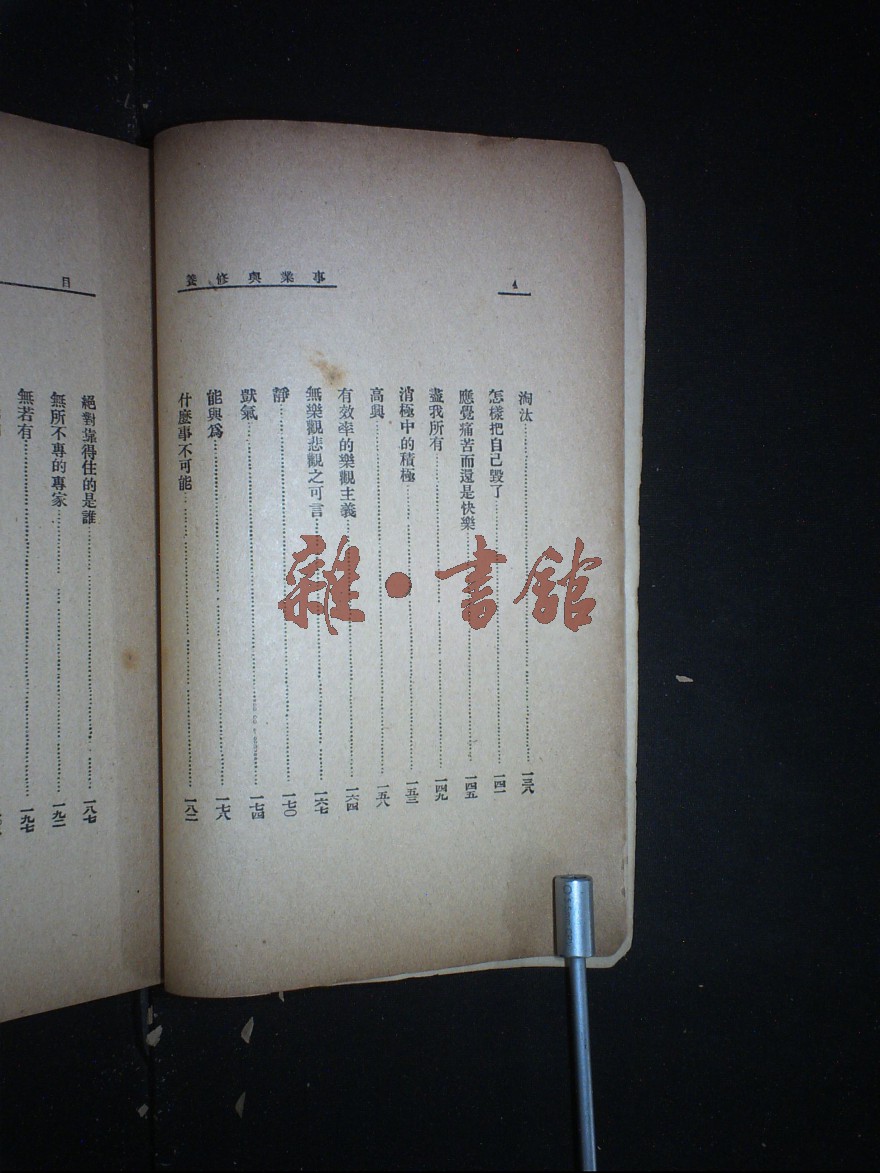 4
事業與修養
淘汰 一三八
怎樣把自己毀了 一四一
應覺痛苦而還是快樂 一四五
盡我所有 一四九
消極中的積極 一五三
高興 一五八
有效率的樂觀主義 一六四
無樂觀悲觀之可言 一六七
靜 一七〇
獃氣 一七四
能與爲 一七八
什麼事不可能 一八二
目
絕對靠得住的是誰 一八七
無所不專的專家 一九二
無若有 一九七
雜·書館